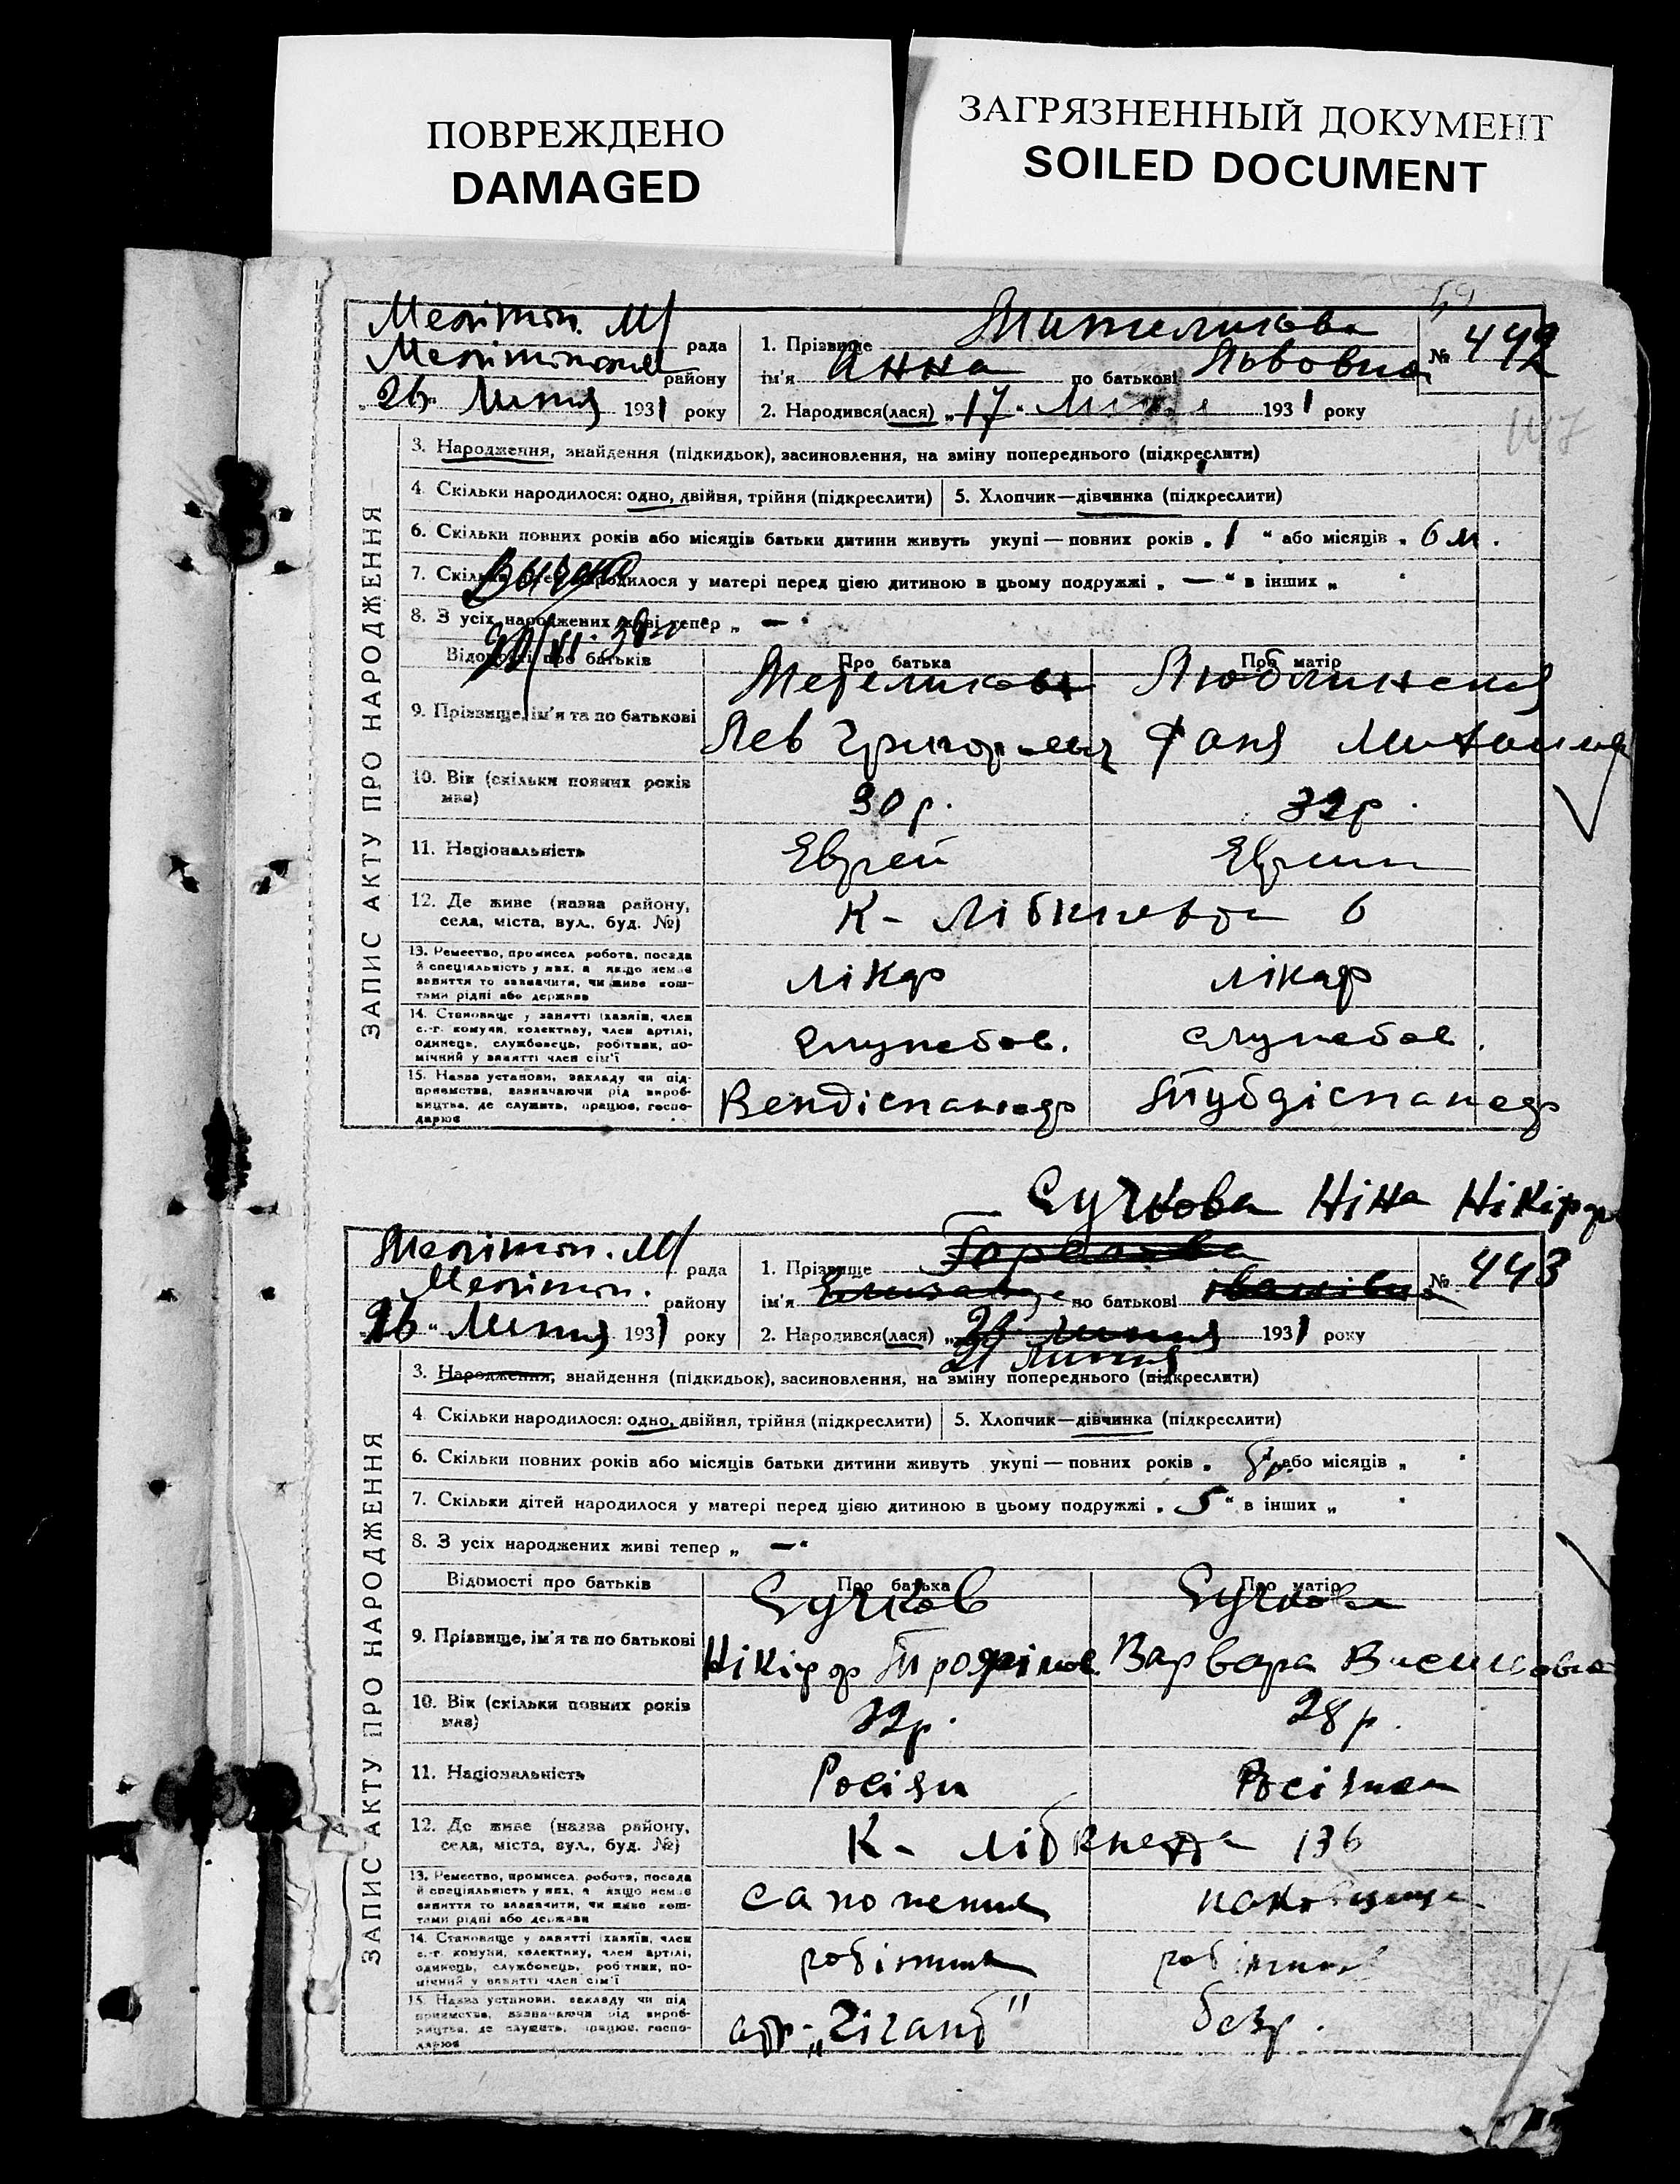 ПОВРЕЖДЕНО
DAMAGED
ЗАГРЯЗНЕННЫЙ ДОКУМЕНТ
SOILED DOCUMENT
ЗАПИС АКТУ ПРО НАРОДЖЕННЯ
рада
району
"26" Липня 1931 року
1. Прізвище
ім'я Анна по батькові Львовна
№ 442
2. Народився(лася) "17" 1931 року
3. Народження, знайдення (підкидьок), засиновлення, на зміну попереднього (підкреслити)
4. Скільки народилося: одно, двійня, трійня (підкреслити) 5. Хлопчик—дівчинка (підкреслити)
6. Скільки повних років або місяців батьки дитини живуть укупі — повних років „ 1 “ або місяців „ 6 м.
7. народилося у матері перед цією дитиною в цьому подружжі „ — “ в інших „
8. З усіх народжених живі тепер „ —
Відомості про батьків Про батька Про матір
9. Прізвище, ім'я та по батькові
Лев Фаня
10. Вік (скільки повних років мав) 30 р. 32 р.
11. Національність Еврей
12. Де живе (назва району, села, міста, вул., буд. №) К- Лібкнехта 6
13. Ремество, промисел, робота, посада й спеціяльність у них, а якщо немає заняття то зазначити, чи живе коштами рідні або держави лікар лікар
14. Становище у занятті (хазяїн, член с.-г. комуни, колективу, член артілі, одинець, службовець, робітник, помічний у занятті член сім'ї службов. службов.
15. Назва установи, закладу чи підприємства, зазначаючи рід виробництва, де служить, працює, господарює Вендіспансер Тубдіспансер
Сучкова Ніна Нікіфор
ЗАПИС АКТУ ПРО НАРОДЖЕННЯ
рада
району
"26" Липня 1931 року
1. Прізвище
ім'я по батькові
№ 443
2. Народився(лася) 1931 року
21 Липня
3. Народження, знайдення (підкидьок), засиновлення, на зміну попереднього (підкреслити)
4. Скільки народилося: одно, двійня, трійня (підкреслити) 5. Хлопчик—дівчинка (підкреслити)
6. Скільки повних років або місяців батьки дитини живуть укупі — повних років „ або місяців „
7. Скільки дітей народилося у матері перед цією дитиною в цьому подружжі „ 5 “ в інших „
8. З усіх народжених живі тепер „ —
Відомості про батьків Про батька Про матір
Сучков Сучкова
9. Прізвище, ім'я та по батькові Нікіфор Трофімов. Варвара
10. Вік (скільки повних років мав) 32 р. 28 р.
11. Національність Росіян Росіянка
12. Де живе (назва району, села, міста, вул., буд. №) К- Лібкнехта 136
13. Ремество, промисел, робота, посада й спеціяльність у них, а якщо немає заняття то зазначити, чи живе коштами рідні або держави сапожник
14. Становище у занятті (хазяїн, член с.-г. комуни, колективу, член артілі, одинець, службовець, робітник, помічний у занятті член сім'ї робітник
15. Назва установи, закладу чи підприємства, зазначаючи рід виробництва, де служить, працює, господарює арт. „Гігант" безр.